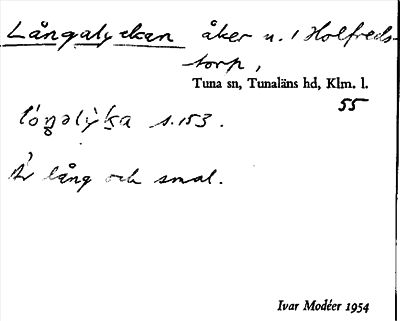 Långalyckan åker n. 1 Holfreds-
torp,
Tuna sn, Tunaläns hd, Klm. l.
55
s. 153.
Är lång och smal.
Ivar Modéer 1954